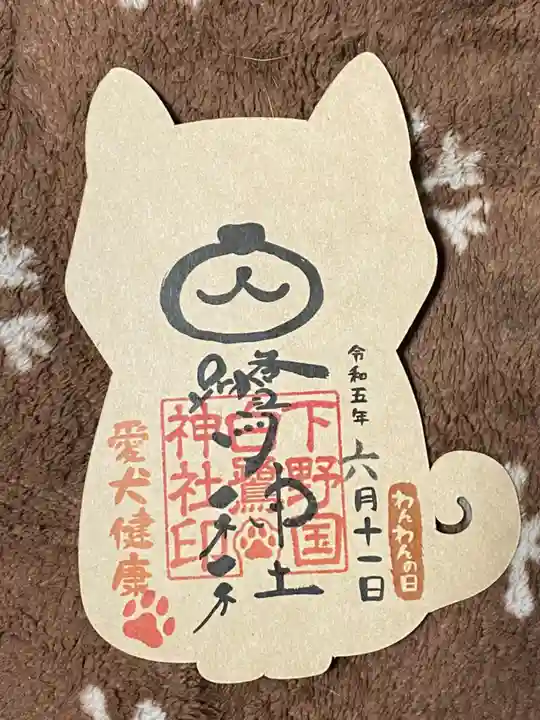 白鷺神社
下野国
白鷺
神社印
令和五年
六月十一日
わんわんの日
愛犬健康